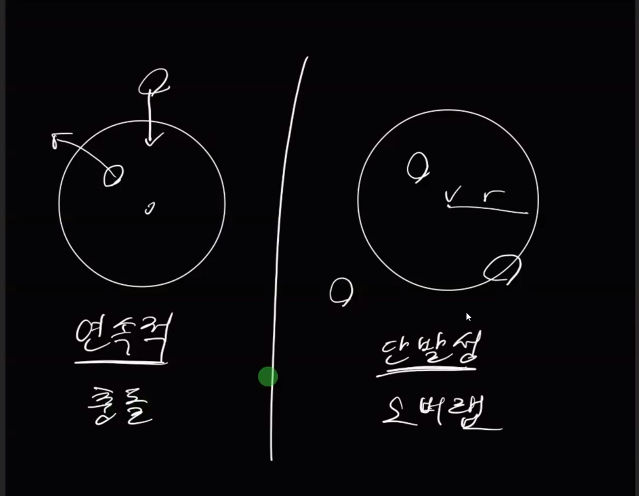 연속적
충돌
v r
단발성
오버랩